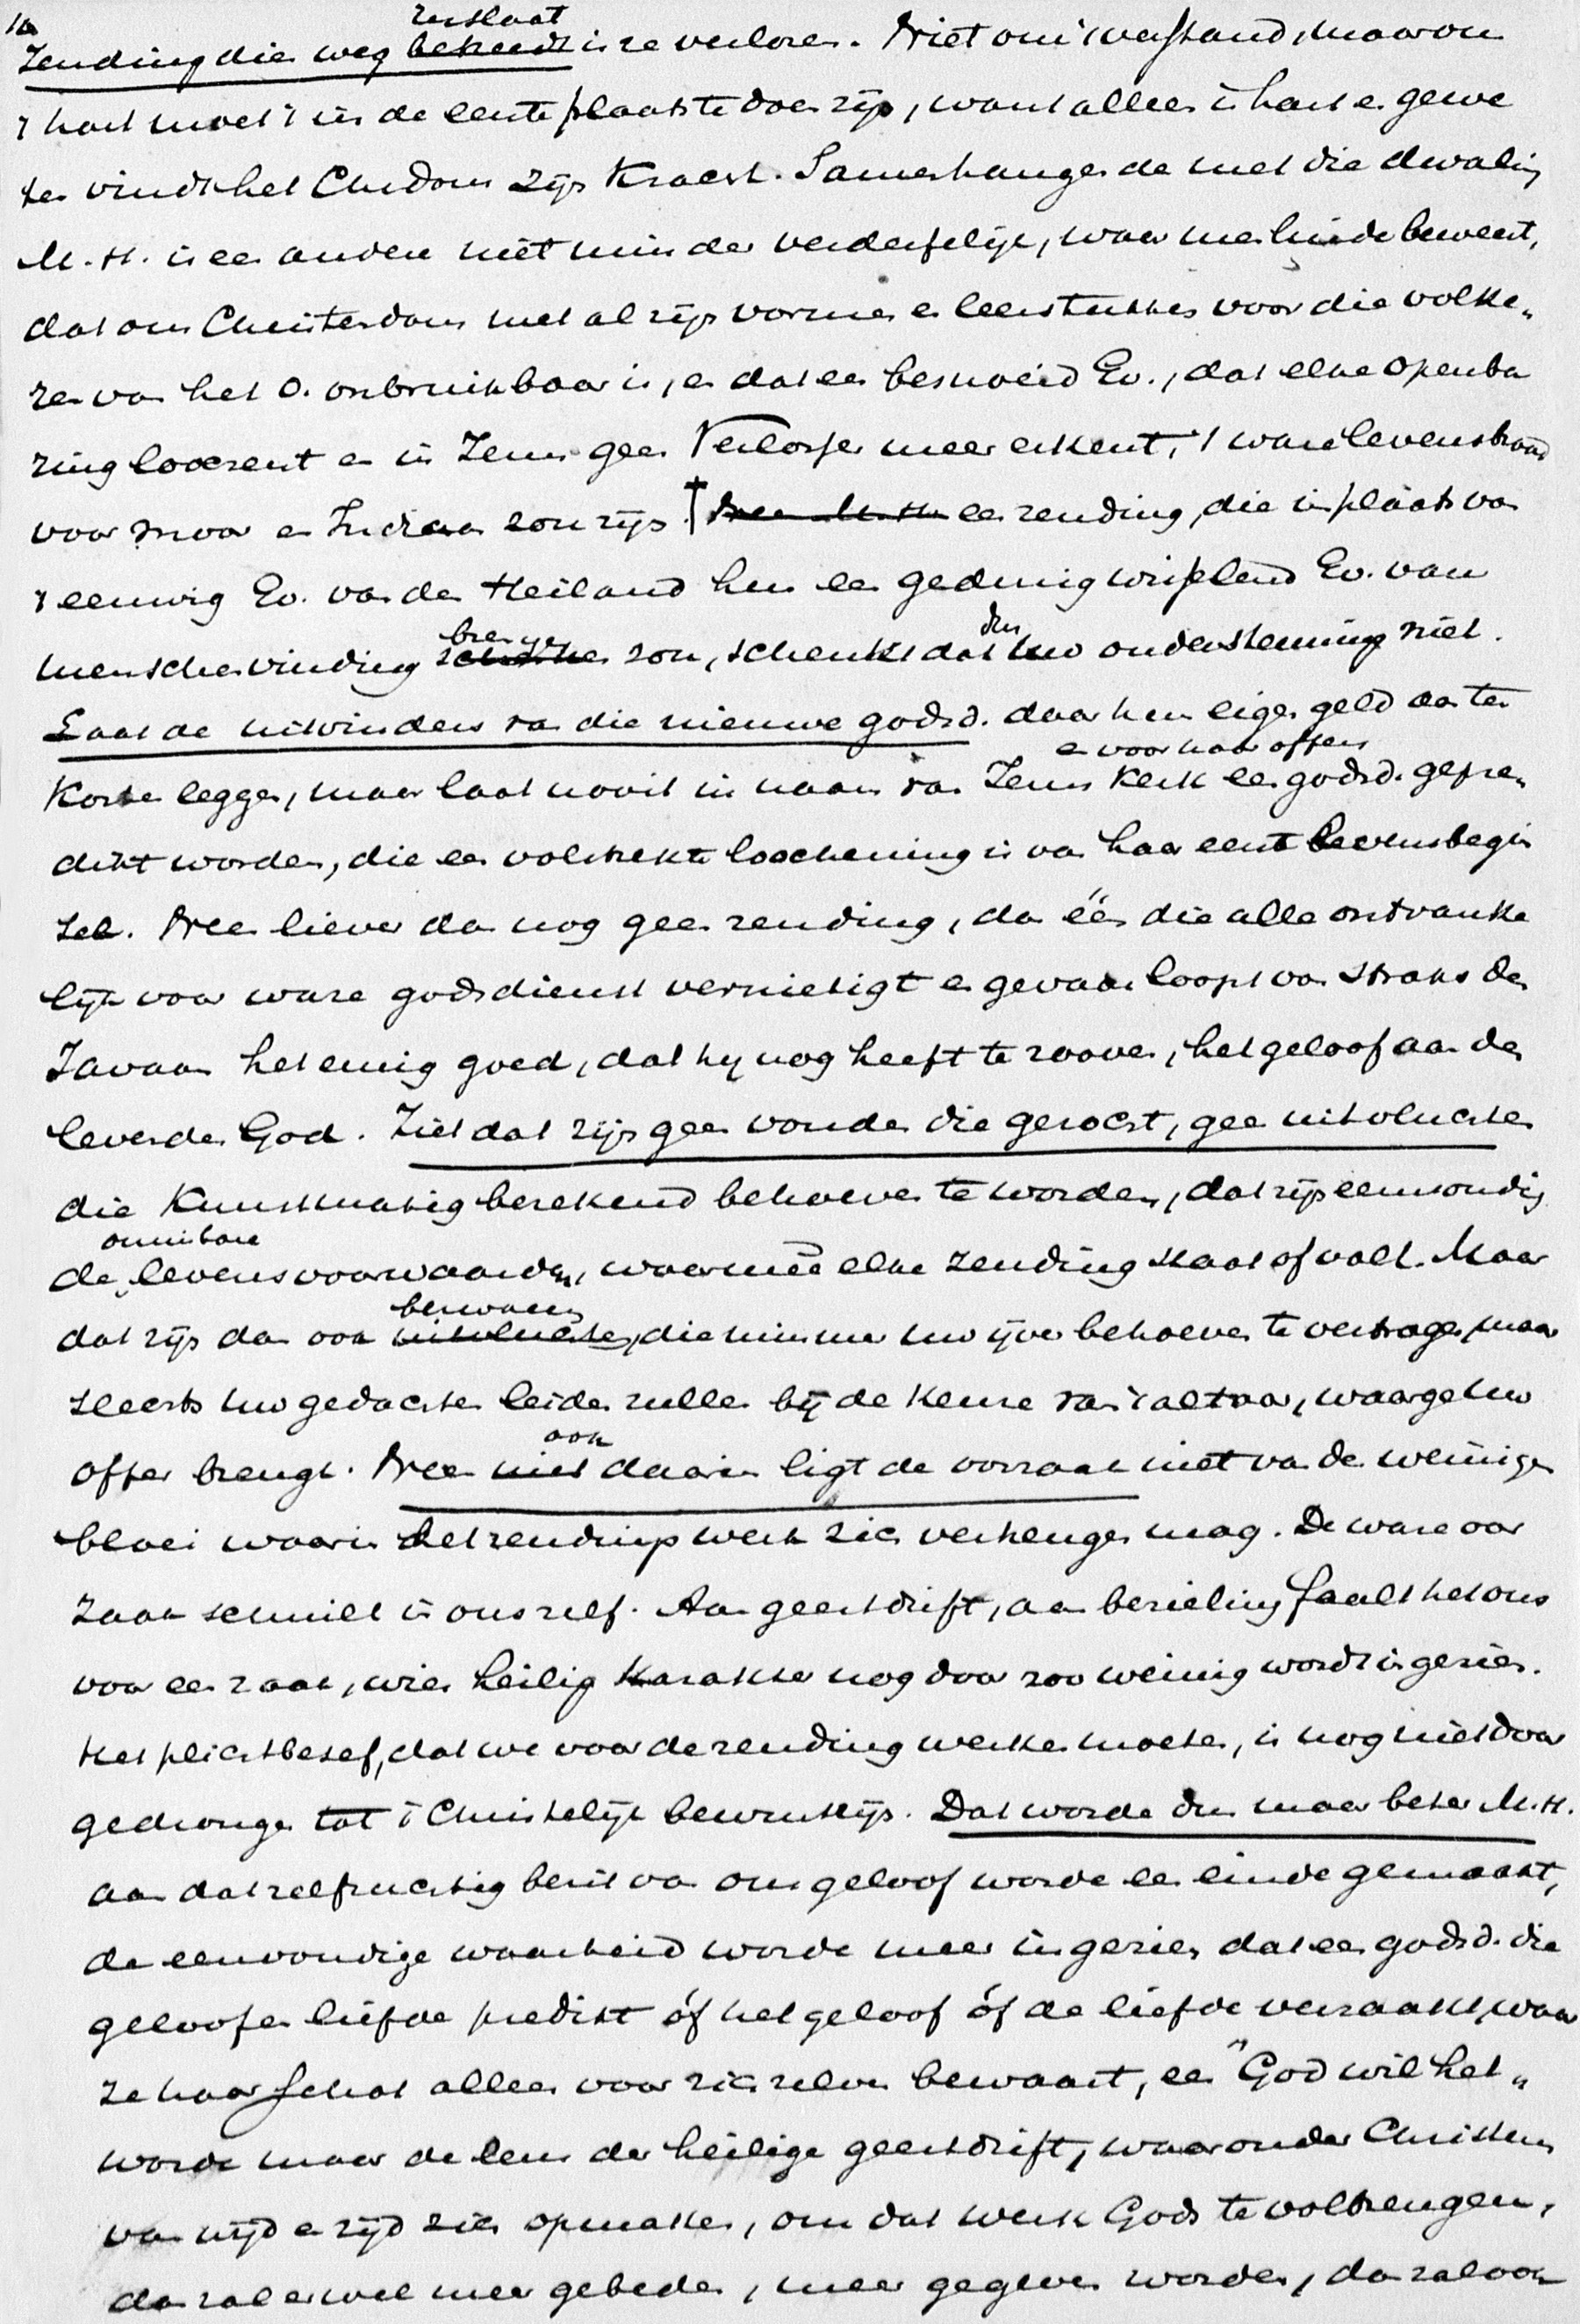 10
inslaat
Zending die weg betreedt is ze verloren. Niet om 't verstand, maar om
't hart moet 't in de eerste plaats te doen zijn, want alleen in hart en gewe
ten vindt het Chrdom zijn kracht. Samenhangende met die dwaling
M.H. is een andere niet minder verderfelijk, waar men luide beweert,
dat ons Christendom met al zijn vormen en leerstukken voor die volke„
ren van het O. onbruikbaar is, en dat een besnoeid Ev., dat elke openba
ring loochent en in Jezus geen Verlosser meer erkent, 't ware levensbrood
voor Moor en Indiaan zou zijn. † een zending, die in plaats van
't eeuwig Ev. van den Heiland hun een gedurig wisselend Ev. van
brengen dus
menschenvinding schenken zou, schenkt dat uw ondersteuning niet.
Laat de uitvinders van die nieuwe godsd. daar hun eigen geld aan ten
en voor haar offers
koste legge, maar laat nooit in naam van Jezus Kerk een godsd. gepre
dikt worden, die een volstrekte loochening is van haar eerst levensbegin
sel. Neen liever dan nog geen zending, dan één die alle ontvanke
lijk voor ware godsdienst vernietigt en gevaar loopt van straks den
Javaan het eenig goed, dat hij nog heeft te rooven, het geloof aan den
levenden God. Ziet dat zijn geen vonden die gezocht, geen uitvluchten
die kunstmatig berekend behoeven te worden, dat zijn eenvoudig
onmisbare
de levensvoorwaarden, waarmeê elke zending staat of valt. Maar
bezwaren
dat zijn dan ook uitvluchten, die nimmer uw ijver behoeven te vertragen, maar
slechts uw gedachten leiden zullen bij de keuze van 't altaar, waarge uw
ook
offer brengt. Neen niet daarin ligt de oorzaak niet van den weinigen
bloei waarin het zendingswerk zich verheugen mag. De ware oor
zaak schuilt in ons zelf. Aan geestdrift, aan bezieling faalt het ons
voor een zaak, wier heilig karakter nog door zoo weinig wordt ingezien.
Het plichtbesef, dat we voor de zending werken moeten, is nog niet door
gedrongen tot 't Christelijk bewustzijn. Dat worde dus maar beter M.H.
aan dat zelfzuchtig bezit van ons geloof worde een einde gemaakt,
de eenvoudige waarheid worde meer ingezien dat een godsd. die
geloof en liefde predikt óf het geloof óf de liefde verzaakt, waar
ze haar schat alleen voor zich zelve bewaart, een "God wil het„
worde maar de leus der heilige geestdrift, waaronder Christenen
van wijd en zijd zich opmaken, om dat werk Gods te volbrengen,
dan zal er wel meer gebeden, meer gegeven worden, dan zal ook